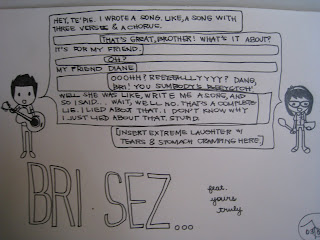 HEY, TE'PIE. I WROTE A SONG. LIKE, A SONG WITH
THREE VERSES & A CHORUS.
THAT'S GREAT, BROTHER! WHAT'S IT ABOUT?
IT'S FOR MY FRIEND.
OH?
MY FRIEND DIANE
OOOHH! REEEEALLLYYYY? DANG,
BRI! YOU SUMBODY'S
WELL SHE WAS LIKE, WRITE ME A SONG, AND
SO I SAID... WAIT, WELL NO. THAT'S A COMPLETE
LIE. I LIED ABOUT THAT. I DON'T KNOW WHY
I JUST LIED ABOUT THAT, STUPID.
[INSERT EXTREME LAUGHTER w/
TEARS & STOMACH CRAMPING HERE]
BRI SEZ...
feat.
yours
truly